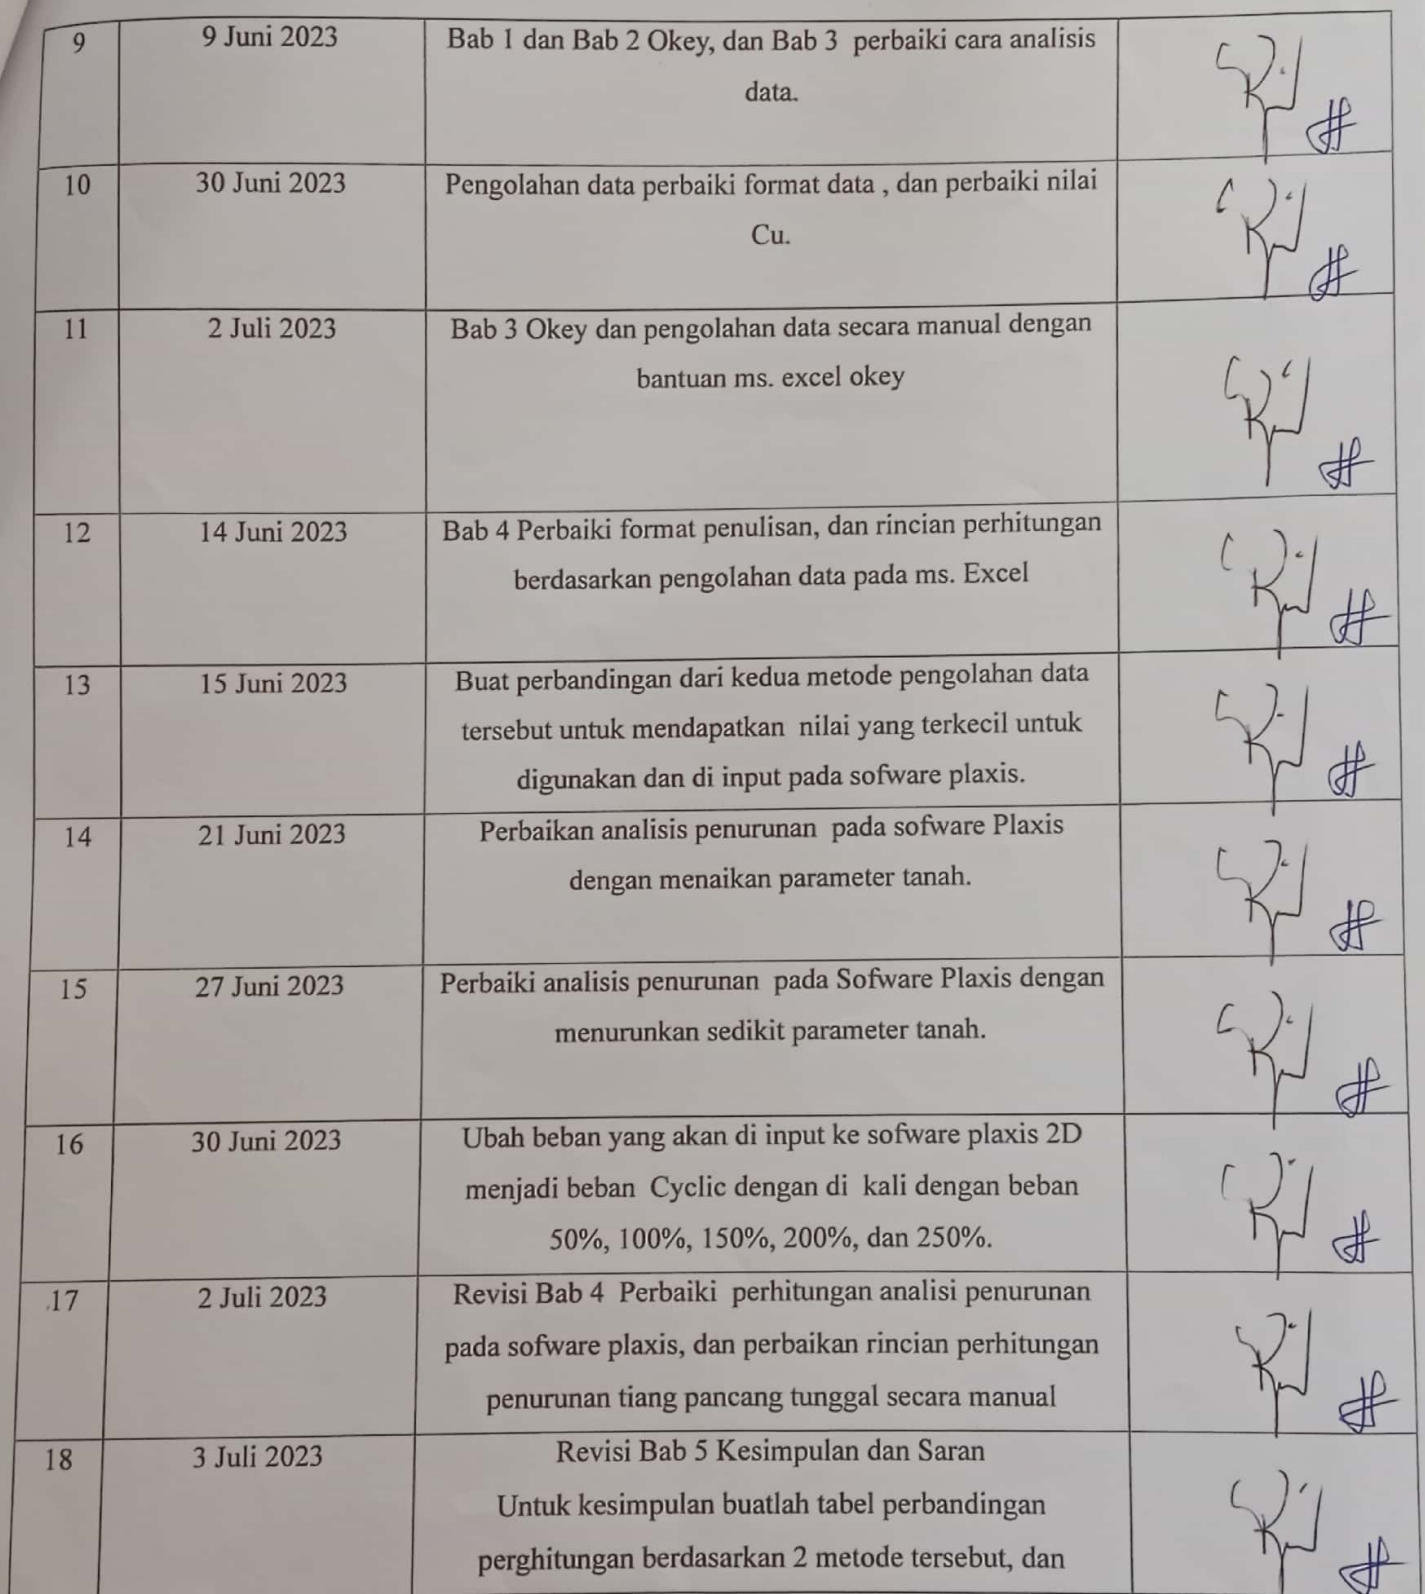 9 9 Juni 2023 Bab 1 dan Bab 2 Okey, dan Bab 3 perbaiki cara analisis
data.
10 30 Juni 2023 Pengolahan data perbaiki format data , dan perbaiki nilai
Cu.
11 2 Juli 2023 Bab 3 Okey dan pengolahan data secara manual dengan
bantuan ms. excel okey
12 14 Juni 2023 Bab 4 Perbaiki format penulisan, dan rincian perhitungan
berdasarkan pengolahan data pada ms. Excel
13 15 Juni 2023 Buat perbandingan dari kedua metode pengolahan data
tersebut untuk mendapatkan nilai yang terkecil untuk
digunakan dan di input pada sofware plaxis.
14 21 Juni 2023 Perbaikan analisis penurunan pada sofware Plaxis
dengan menaikan parameter tanah.
15 27 Juni 2023 Perbaiki analisis penurunan pada Sofware Plaxis dengan
menurunkan sedikit parameter tanah.
16 30 Juni 2023 Ubah beban yang akan di input ke sofware plaxis 2D
menjadi beban Cyclic dengan di kali dengan beban
50%, 100%, 150%, 200%, dan 250%.
17 2 Juli 2023 Revisi Bab 4 Perbaiki perhitungan analisi penurunan
pada sofware plaxis, dan perbaikan rincian perhitungan
penurunan tiang pancang tunggal secara manual
18 3 Juli 2023 Revisi Bab 5 Kesimpulan dan Saran
Untuk kesimpulan buatlah tabel perbandingan
perghitungan berdasarkan 2 metode tersebut, dan